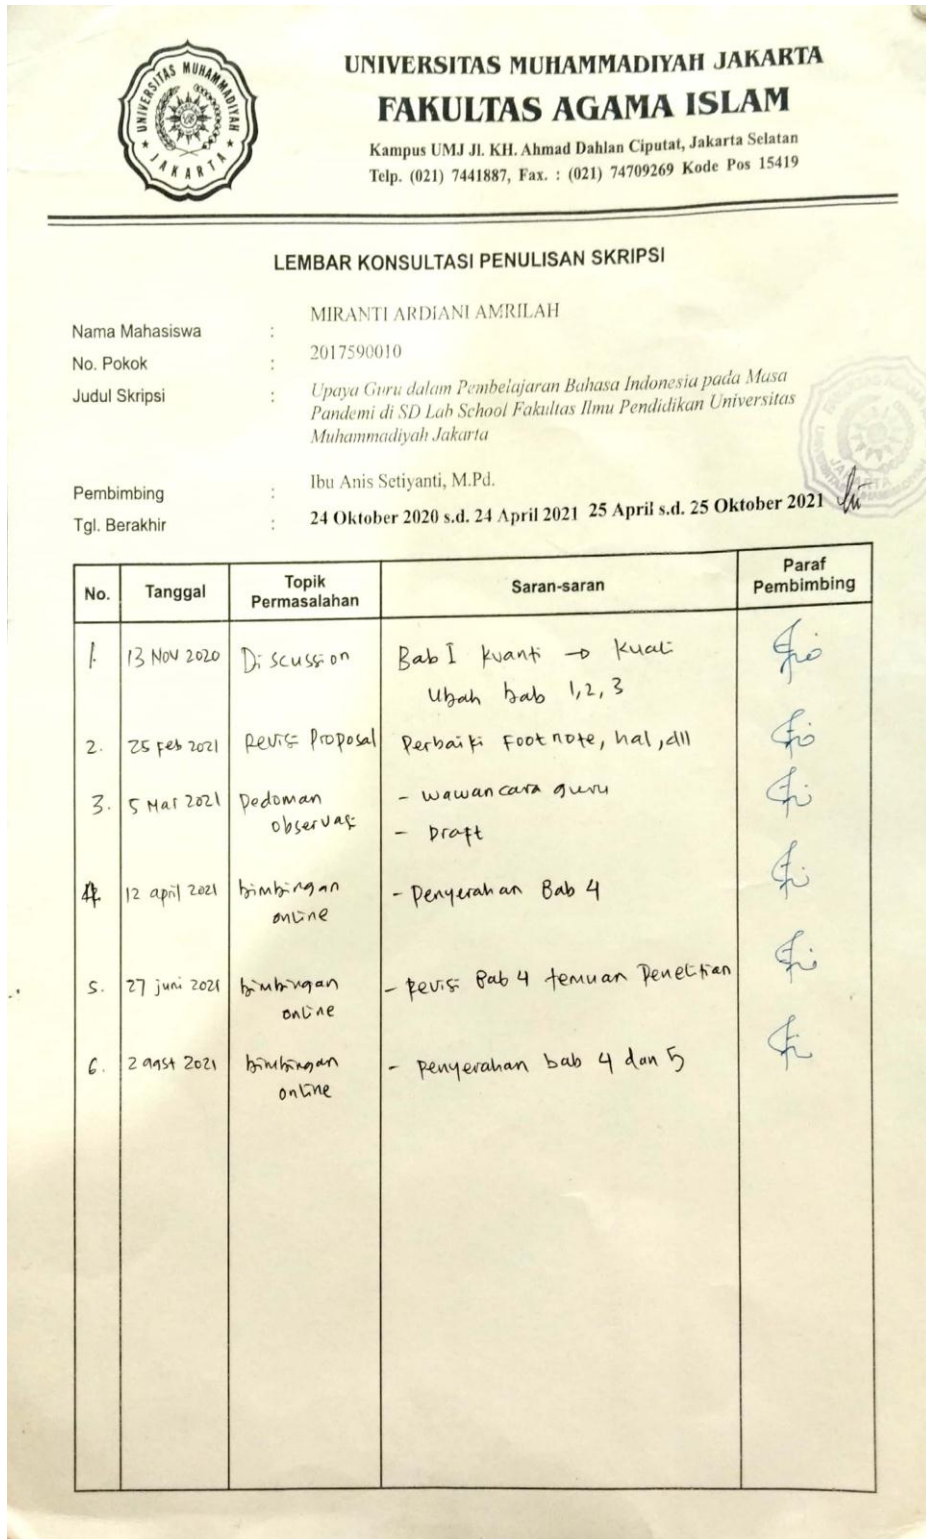 UNIVERSITAS MUHAMMADIYAH JAKARTA
UNIVERSITAS MUHAMMADIYAH JAKARTA
FAKULTAS AGAMA ISLAM
Kampus UMJ Jl. KH. Ahmad Dahlan Ciputat, Jakarta Selatan
Telp. (021) 7441887, Fax. : (021) 74709269 Kode Pos 15419
LEMBAR KONSULTASI PENULISAN SKRIPSI
Nama Mahasiswa : MIRANTI ARDIANI AMRILAH
No. Pokok : 2017590010
Judul Skripsi : Upaya Guru dalam Pembelajaran Bahasa Indonesia pada Masa
Pandemi di SD Lab School Fakultas Ilmu Pendidikan Universitas
Muhammadiyah Jakarta
Pembimbing : Ibu Anis Setiyanti, M.Pd.
Tgl. Berakhir : 24 Oktober 2020 s.d. 24 April 2021 25 April s.d. 25 Oktober 2021
No. Tanggal Topik Permasalahan Saran-saran Paraf Pembimbing
1. 13 Nov 2020 Discussion Bab I kuanti → kuali
Ubah bab 1, 2, 3
2. 25 Feb 2021 Revisi Proposal Perbaiki Footnote, hal, dll
3. 5 Mar 2021 Pedoman - wawancara guru
observasi - Draft
4. 12 april 2021 bimbingan - Penyerahan Bab 4
online
5. 27 juni 2021 bimbingan - Revisi Bab 4 temuan Penelitian
online
6. 2 agst 2021 bimbingan - penyerahan bab 4 dan 5
online